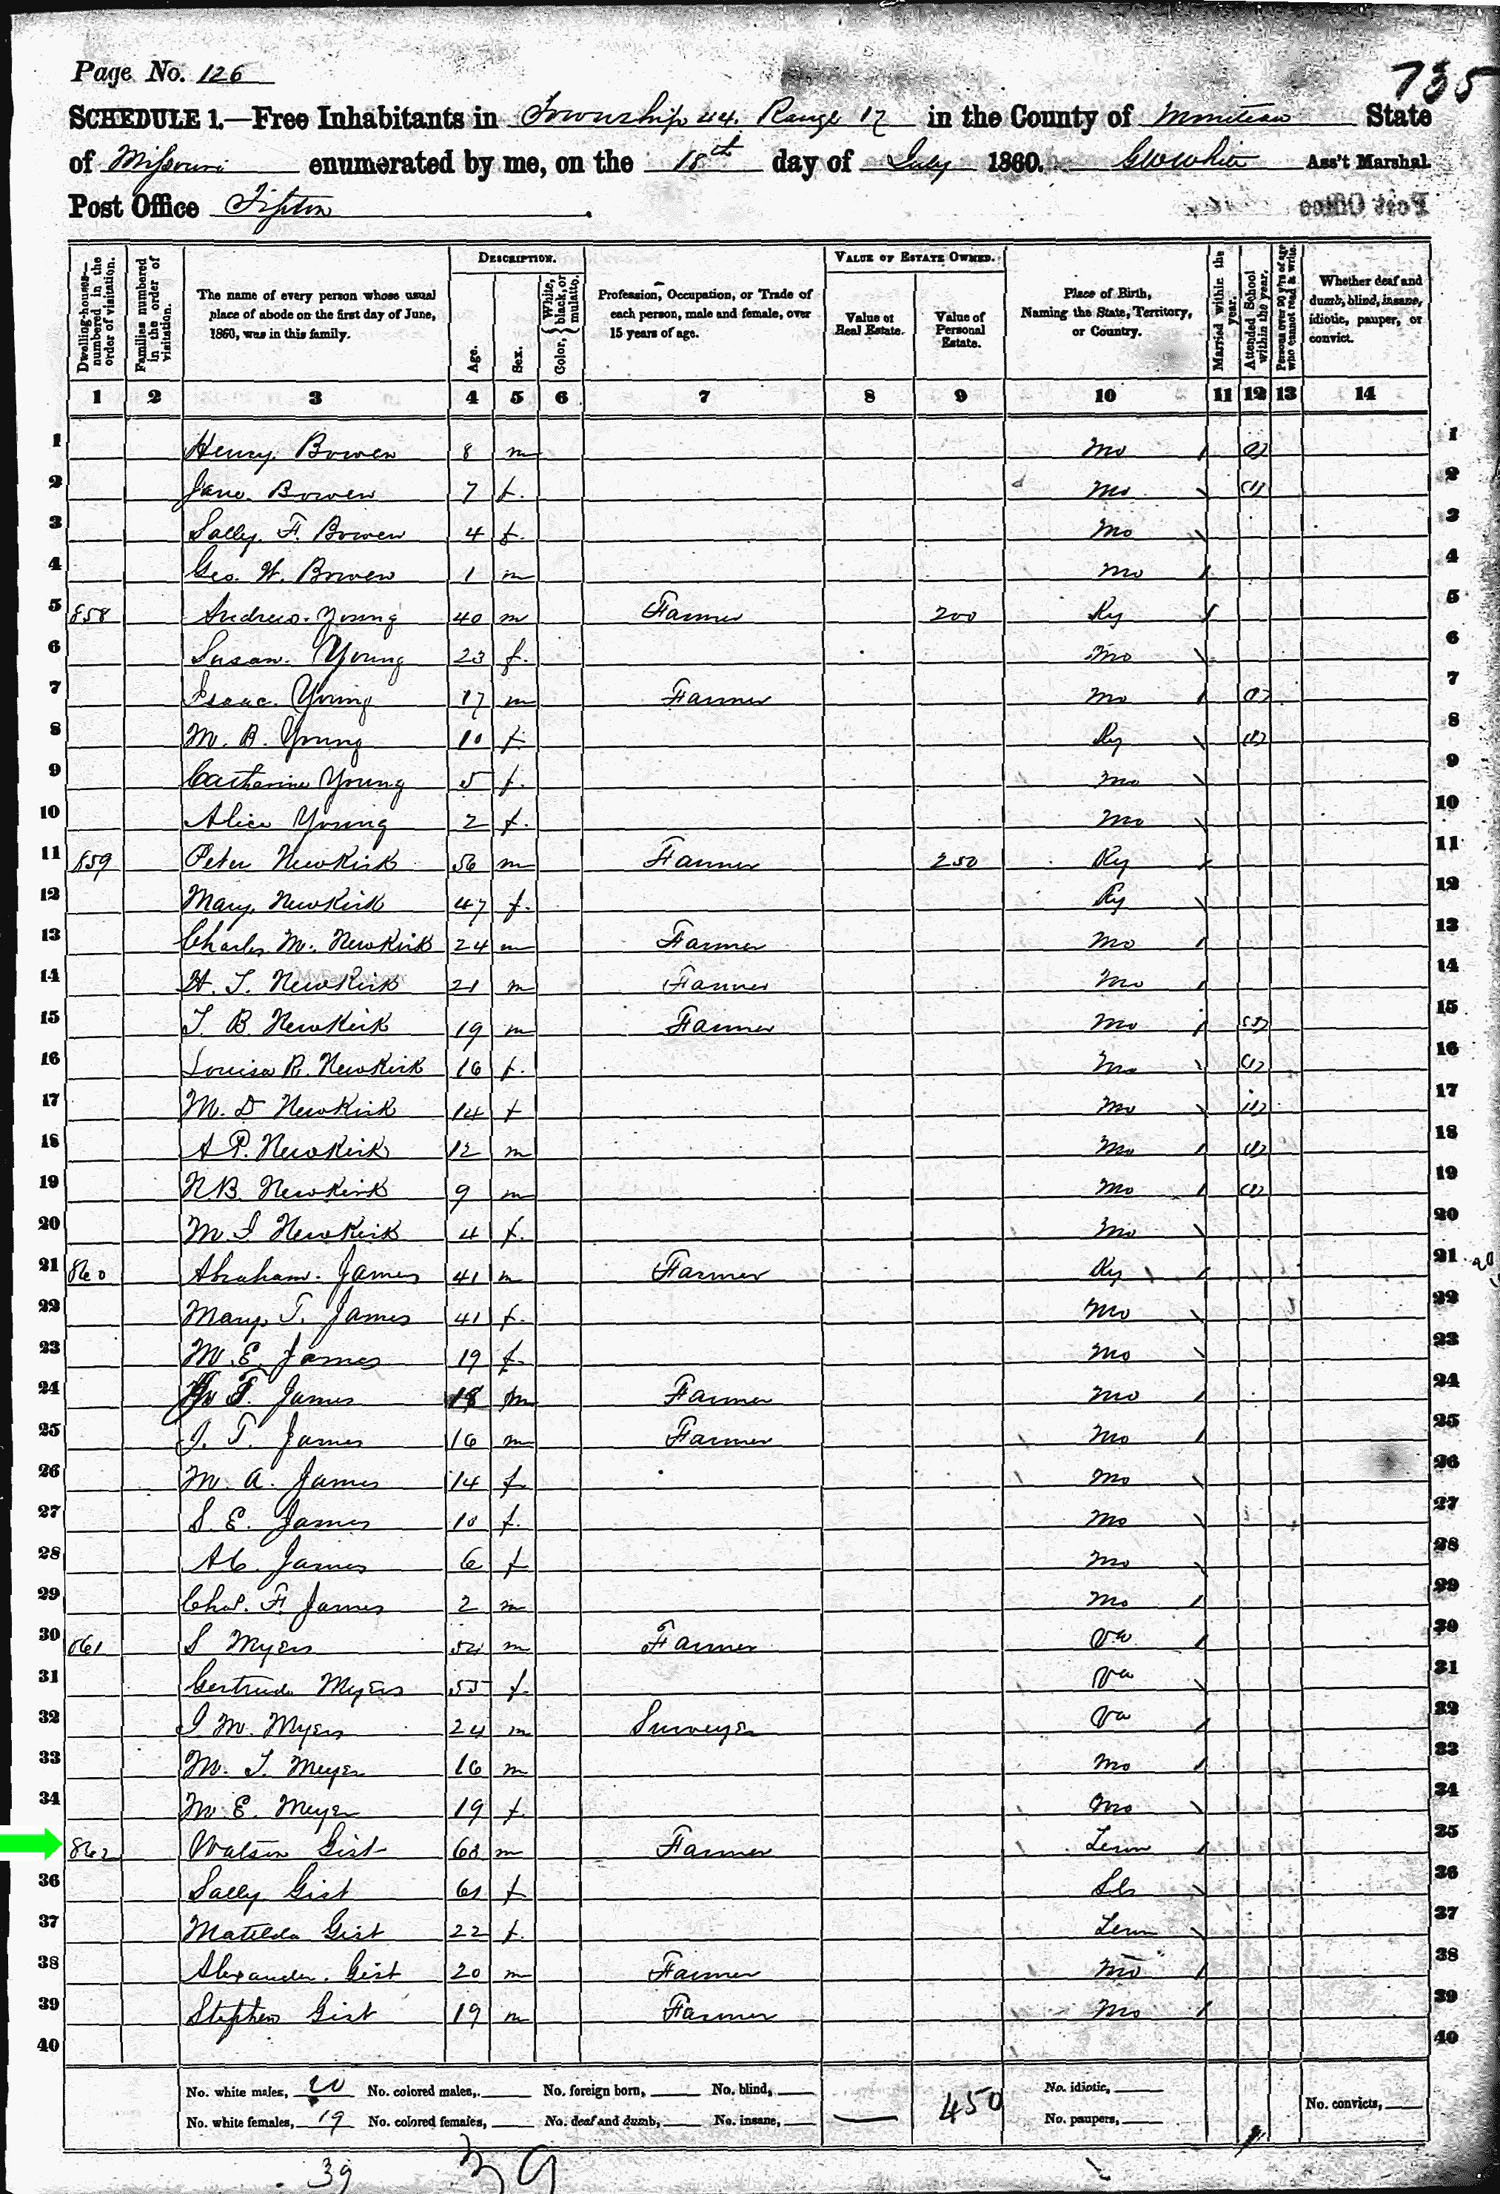 Page No. 126
735
SCHEDULE 1.—Free Inhabitants in Township 44. Range 17 in the County of Moniteau State
of Missouri enumerated by me, on the 18th day of July 1860. G W White Ass't Marshal.
Post Office Tipton.
Post Office
Dwelling-houses—numbered in the order of visitation.
Families numbered in the order of visitation.
The name of every person whose usual place of abode on the first day of June, 1860, was in this family.
DESCRIPTION.
Age.
Sex.
Color, {White, black, or mulatto.
Profession, Occupation, or Trade of each person, male and female, over 15 years of age.
VALUE OF ESTATE OWNED.
Value of Real Estate.
Value of Personal Estate.
Place of Birth, Naming the State, Territory, or Country.
Married within the year.
Attended School within the year.
Persons over 20 y'rs of age who cannot read & write.
Whether deaf and dumb, blind, insane, idiotic, pauper, or convict.
1 2 3 4 5 6 7 8 9 10 11 12 13 14
1 Henry Bowen 8 m Mo / (1) 1
2 Jane Bowen 7 f. Mo \ (1) 2
3 Sally. F. Bowen 4 f. Mo \ 3
4 Geo. W. Bowen 1 m Mo / 4
5 858 Andrew Young 40 m Farmer 200 Ky / 5
6 Susan. Young 23 f. Mo \ 6
7 Isaac. Young 17 m Farmer Mo / (1) 7
8 M. B. Young 10 f. Ky \ (1) 8
9 Catherine Young 5 f. Mo \ 9
10 Alice Young 2 f. Mo \ 10
11 859 Peter NewKirk 56 m Farmer 250 Ky / 11
12 Mary. NewKirk 47 f. Ky \ 12
13 Charles M. NewKirk 24 m Farmer Mo / 13
14 H. T. NewKirk 21 m Farmer Mo / 14
MyFamily.com
15 T B NewKirk 19 m Farmer Mo / (1) 15
16 Louisa R. NewKirk 16 f. Mo \ (1) 16
17 M. D NewKirk 14 f Mo \ (1) 17
18 A P. NewKirk 12 m Mo / (1) 18
19 N B. NewKirk 9 m Mo / (1) 19
20 M. I NewKirk 4 f. Mo \ 20
21 860 Abraham. James 41 m Farmer Ky / 21
22 Mary T. James 41 f. Mo \ 22
23 M. E. James 19 f. Mo \ 23
24 T. James 18 m Farmer Mo / 24
25 J. T. James 16 m Farmer Mo / 25
26 M. A. James 14 f Mo \ 26
27 S. E. James 10 f. Mo \ 27
28 A C. James 6 f Mo \ 28
29 Chas. F. James 2 m Mo / 29
30 861 S Myers m Farmer Va / 30
31 Gertrude Myers 55 f. Va \ 31
32 J M. Myers 24 m Surveyer Va / 32
33 M. T. Meyer 16 m Mo / 33
34 M E. Meyer 19 f. Mo \ 34
862 Watson Gist m Farmer Tenn / 35
36 Sally Gist 61 f 36
37 Matilda Gist 22 f. Tenn \ 37
38 Alexander. Gist 20 m Farmer Mo / 38
39 Stephen Gist 19 m Farmer Mo / 39
40 40
No. white males, 20 No. colored males, No. foreign born, No. blind, No. idiotic,
No. white females, 19 No. colored females, No. deaf and dumb, No. insane, — 450 No. paupers, No. convicts,
39 39